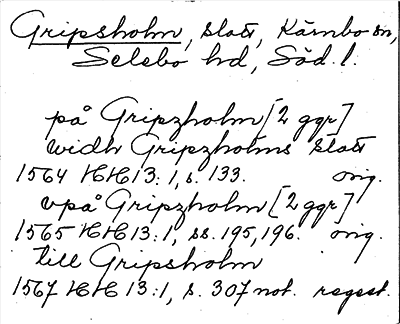 Gripsholm, slott, Kärnbo sn,
Selebo hd, Söd. l.
på Gripzholm [2 ggr]
widh Gripzholms Slott
1564 HH 13:1, s. 133. orig.
vpå Gripzholm [2 ggr]
1565 HH 13:1, ss. 195, 196. orig.
till Gripsholm
1567 HH 13:1, s. 307 not. regest.